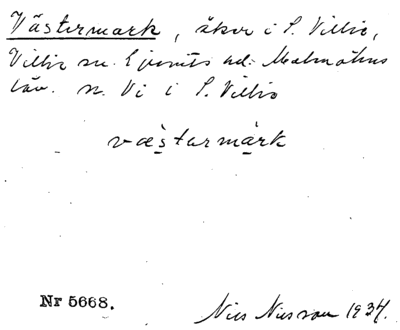 Västermark, åker i S. Villie,
Villie sn. Ljunits hd. Malmöhus
län. n. Vi i S. Villie
västarmark
Nr 5668.
Nils Nilsson 1934.